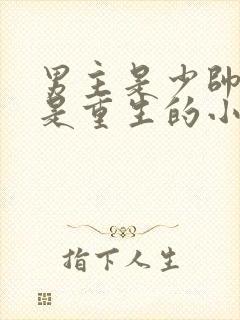 男主是少帅
是重生的小
指下人生